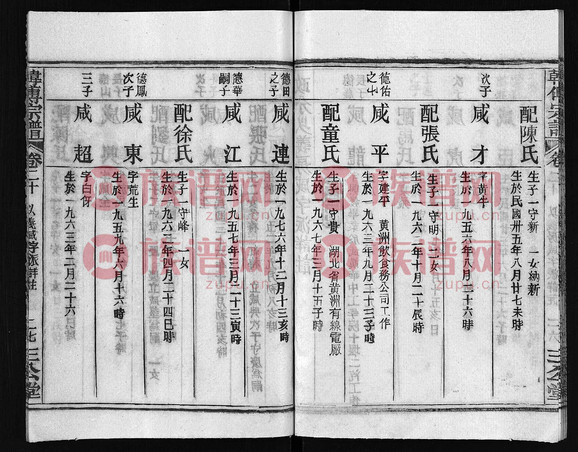 韓傅宗譜 卷二十
配陳氏 生於民國卅五年八月廿七未時
生子一 守新 一女 幼新
次子 咸才 字黃牛
生於一九五六年八月二十六時
配張氏 生子一 守明 一女
生於一九六二年十月二十辰時
德佑之子 咸平 字建平 黃洲飲食務公司工作
生於一九六三年九月二十三子時
配童氏 生子一 守貴 湖北省黃洲有線電廠
生於一九六七年三月十五子時
德田之子 咸連 生於一九七六年十二月十三亥時
應華嗣子 咸江 生於一九五七年三月二十三寅時
配徐氏 生子一 守峰 一女
生於一九六二年四月二十四巳時
德鳳次子 咸東 字荒生
生於一九五九年八月十六時
三子 咸超 字白伢
生於一九六三年二月二十六
韓傅宗譜 卷二十 二七 三公堂
族譜网